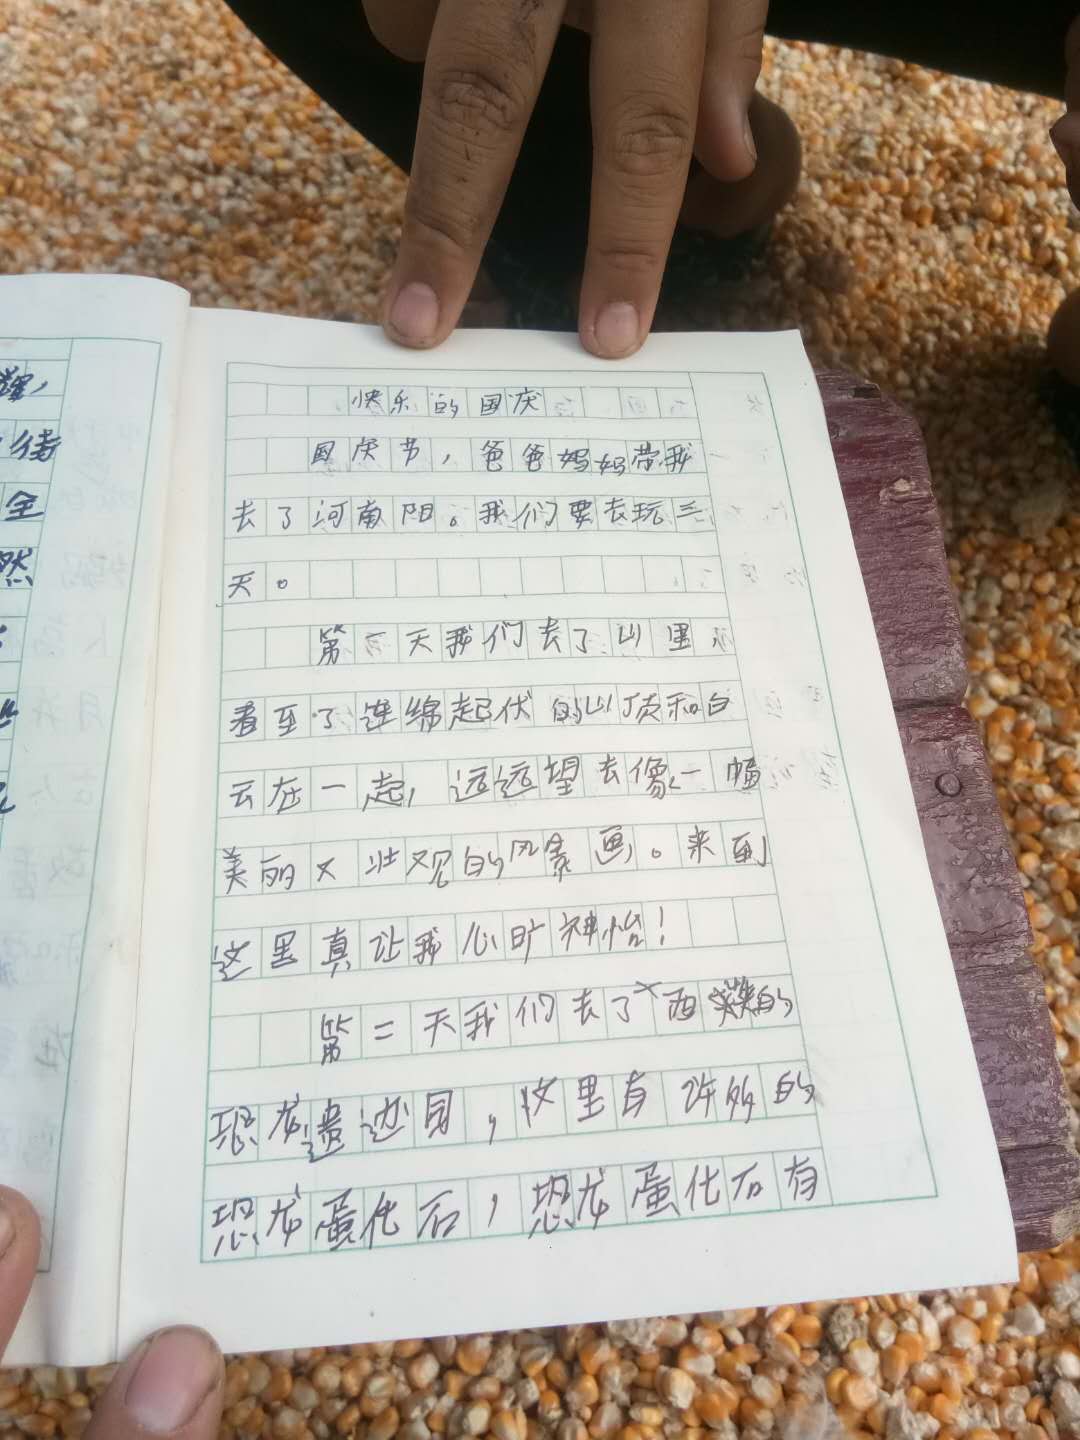 辉，
绪
全
然
快乐的国庆
国庆节，爸爸妈妈带我
去了河南阳。我们要去玩三
天。
第一天我们去了山里
看至了连绵起伏的山顶和白
云在一起，远远望去像一幅
美丽又壮观的风景画。来到
这里真让我心旷神怡！
第二天我们去了西峡的
恐龙遗迹园，这里有许多的
恐龙蛋化石，恐龙蛋化石有